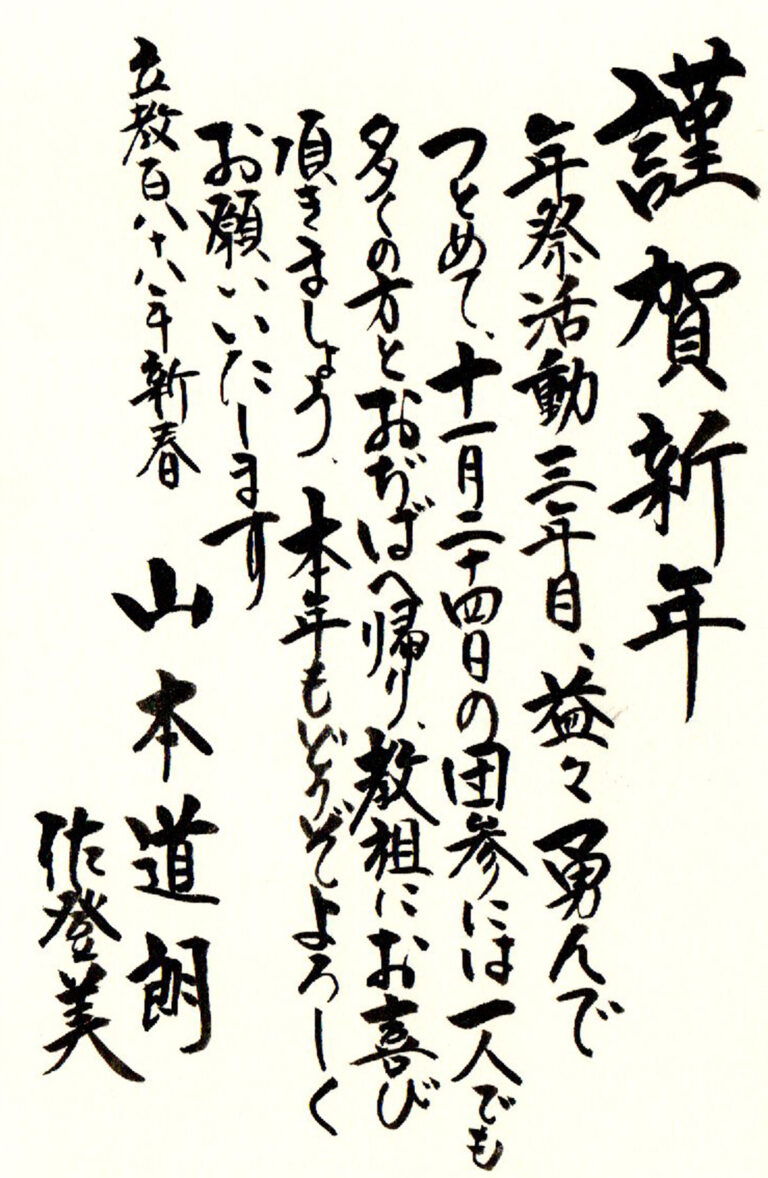 謹賀新年
年祭活動三年目、益々勇んで
つとめて、十一月二十四日の団参には一人でも
多くの方とおぢばへ帰り、教祖にお喜び
頂きましょう、本年もどうぞよろしく
お願いいたします
立教百八十八年新春
山本道朗
佐登美